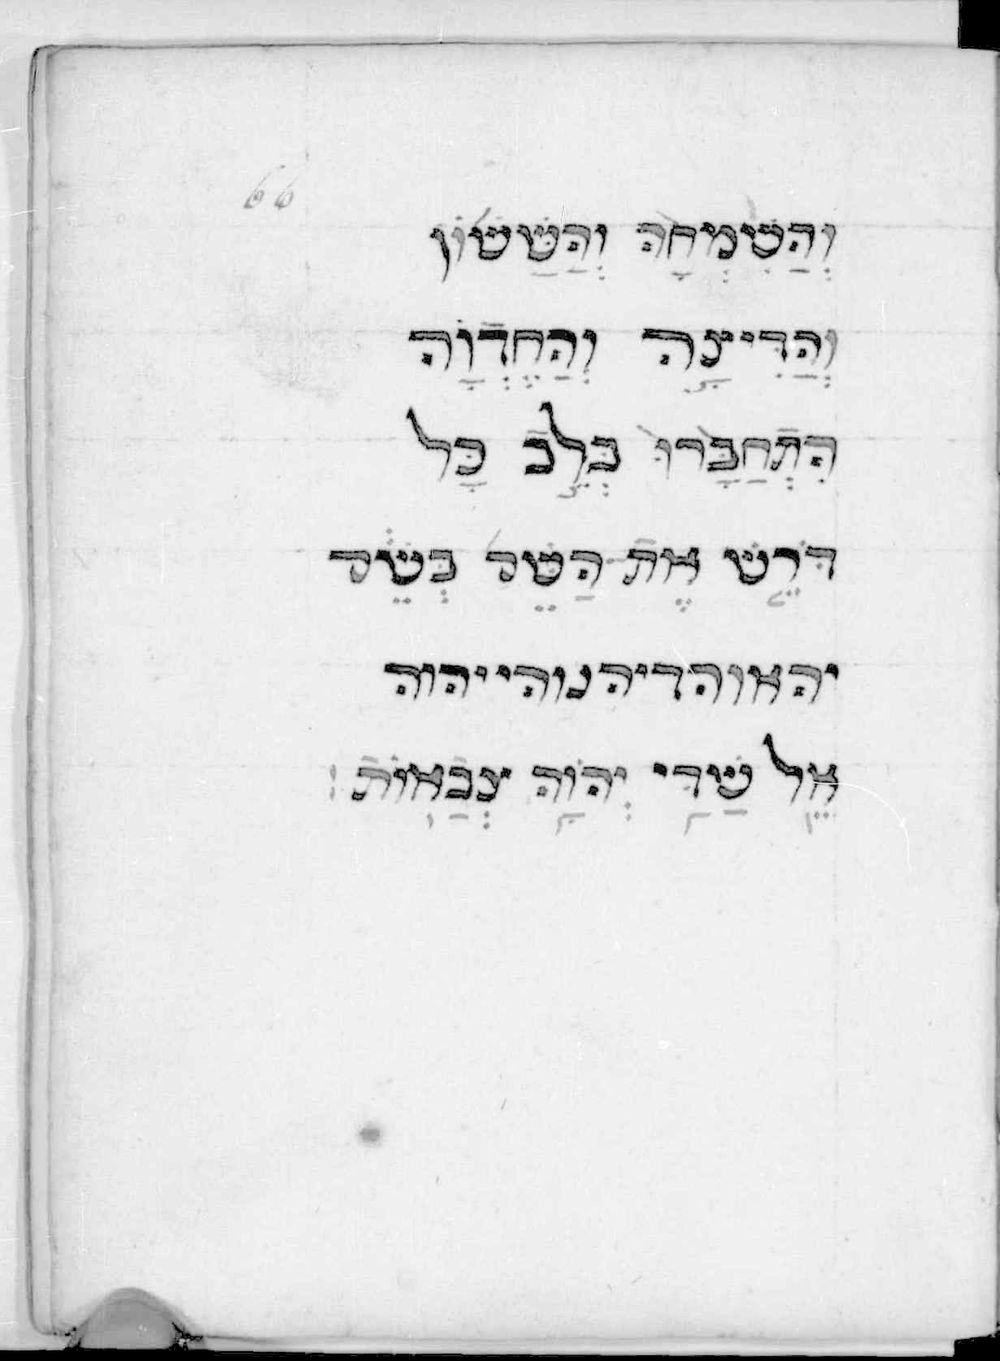 66
וְהַשִּׂמְחָה וְהַשַּׂשׂוֹן
וְהַדִּיצָה וְהַחֶדְוָה
הִתְחַבָּרוּ בְּלֵב כָּל
דֹּרֵשׁ אֶת־הַשֵּׁם בְּשֵׁם
יהאוהדיהנוהי יהוה
אֵל שַׁדַּי יְהוָֹה צְבָאוֹת׃